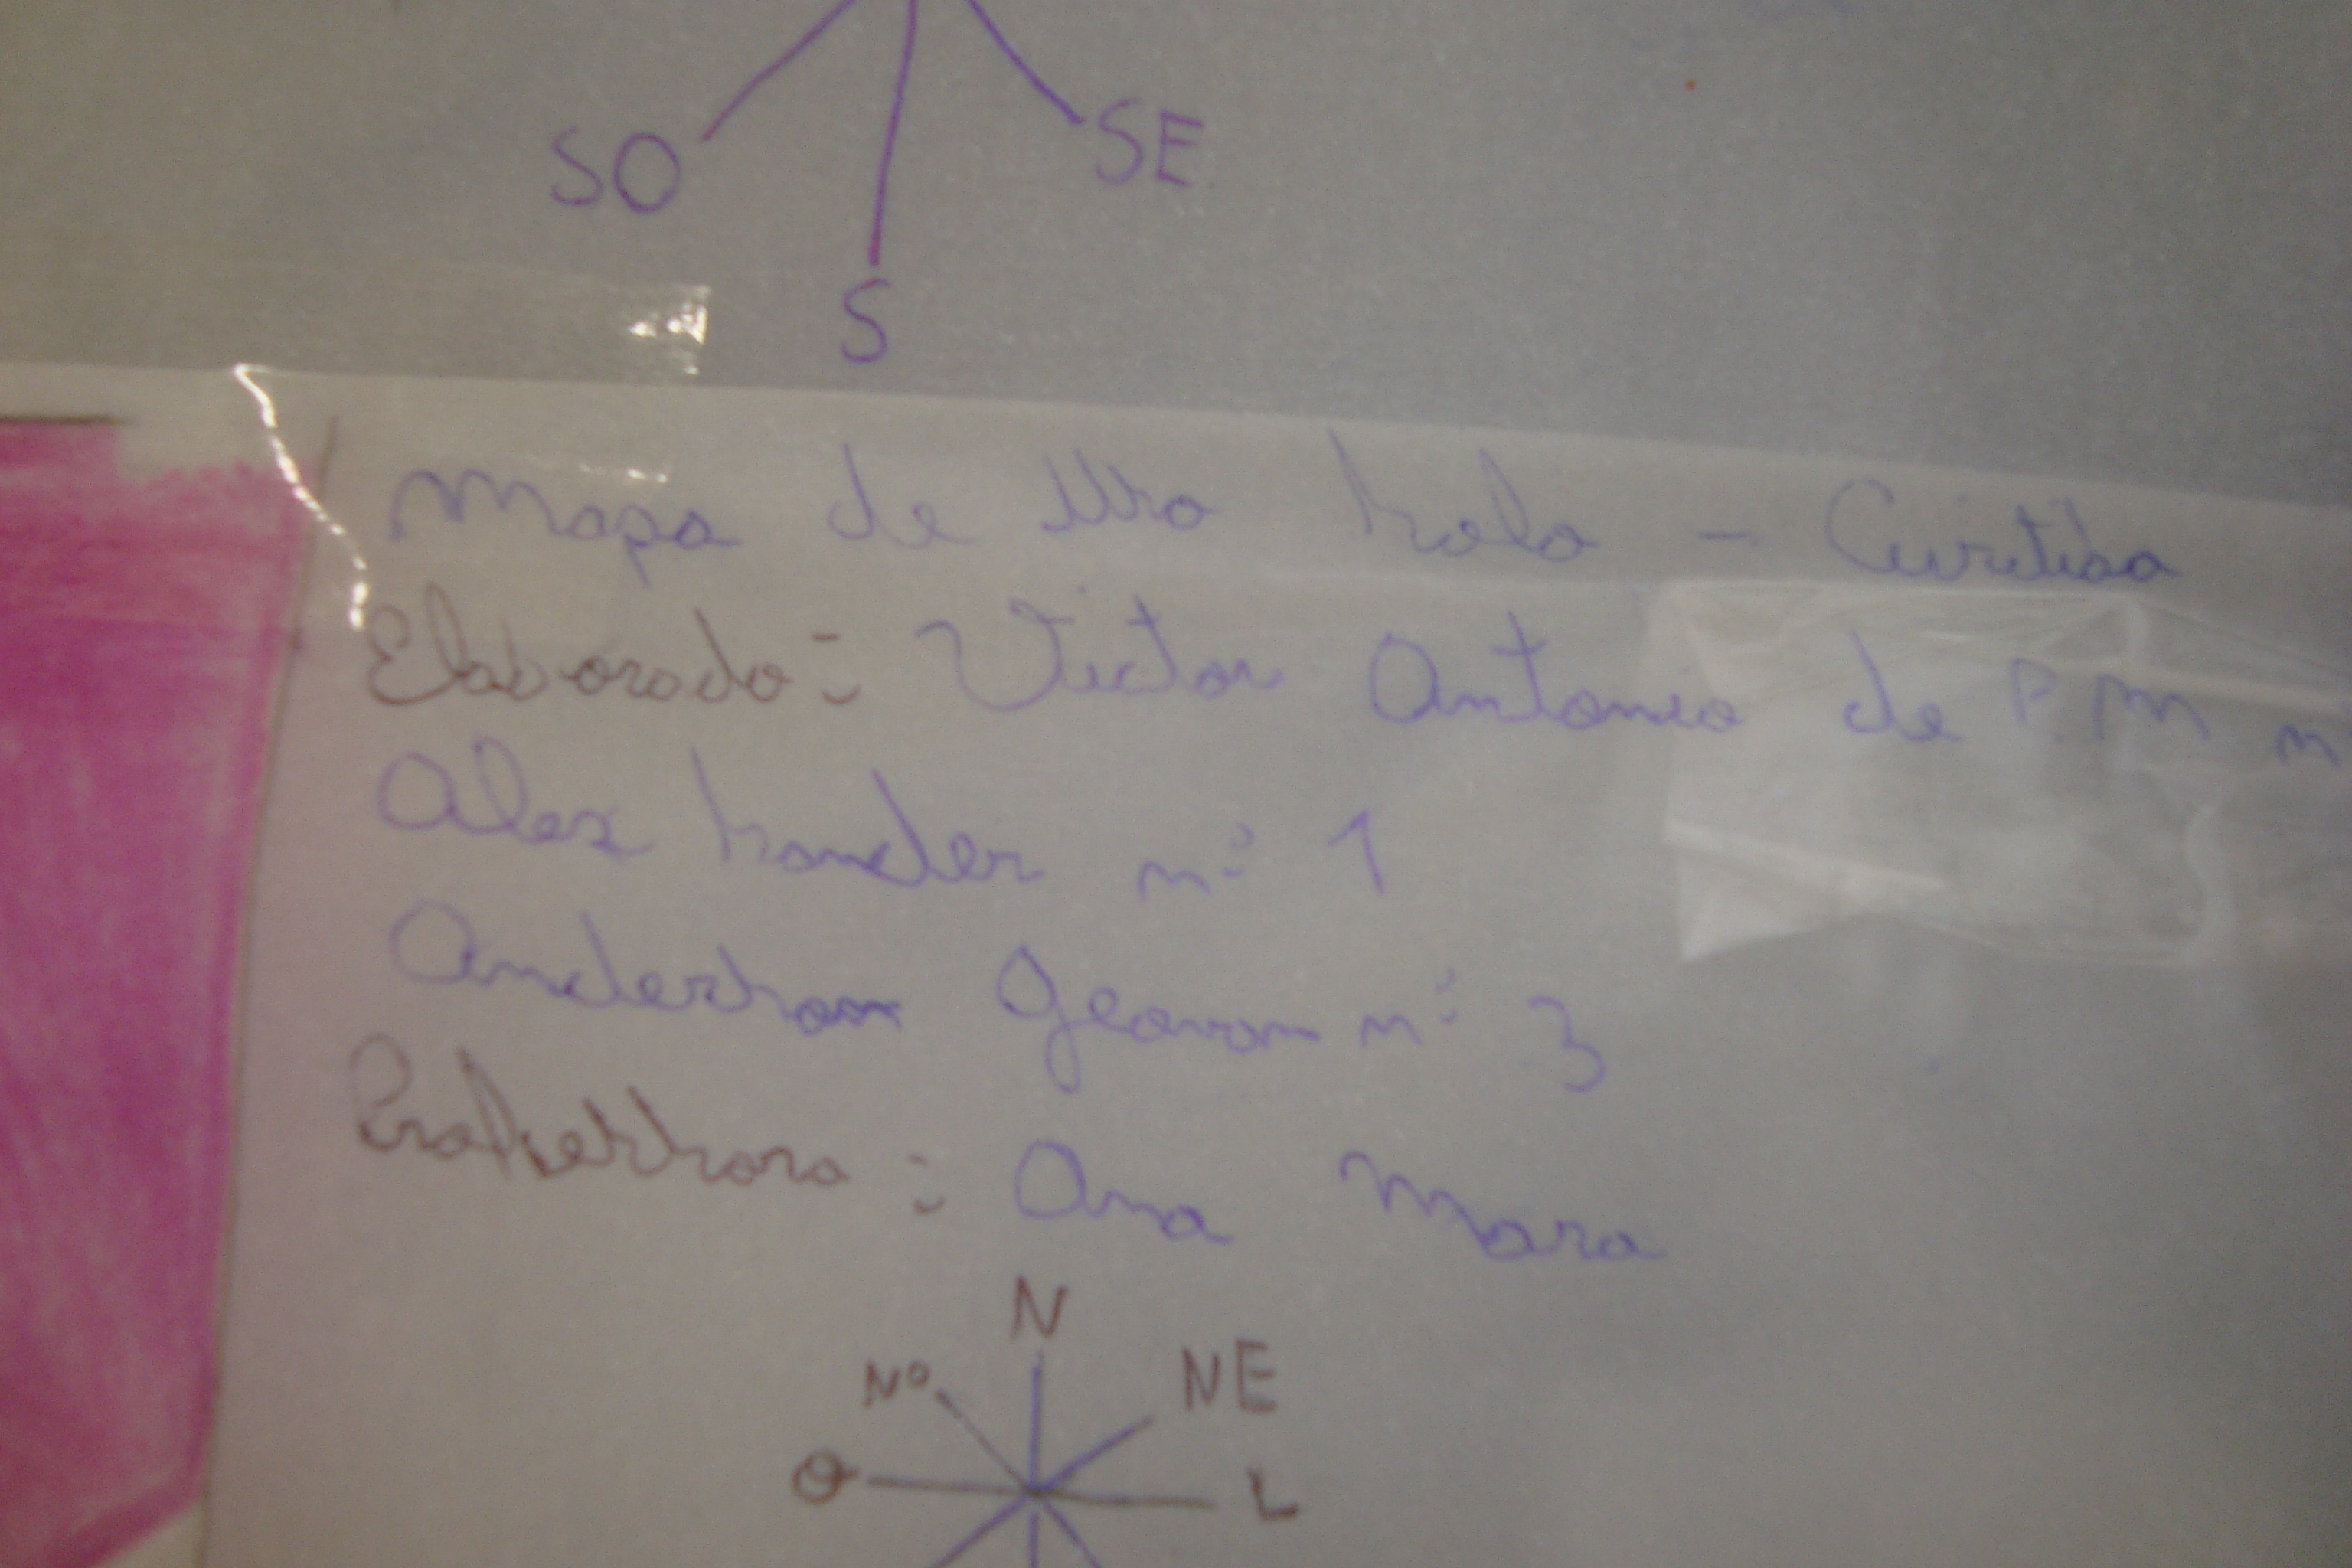 SO SE
S
Mapa de Uso solo - Curitiba
Elaborado: Victor Antonio de P. M nº
Alex sander nº 1
Anderson Geovan nº 3
Professora: Ana Mara
N
NO NE
O L